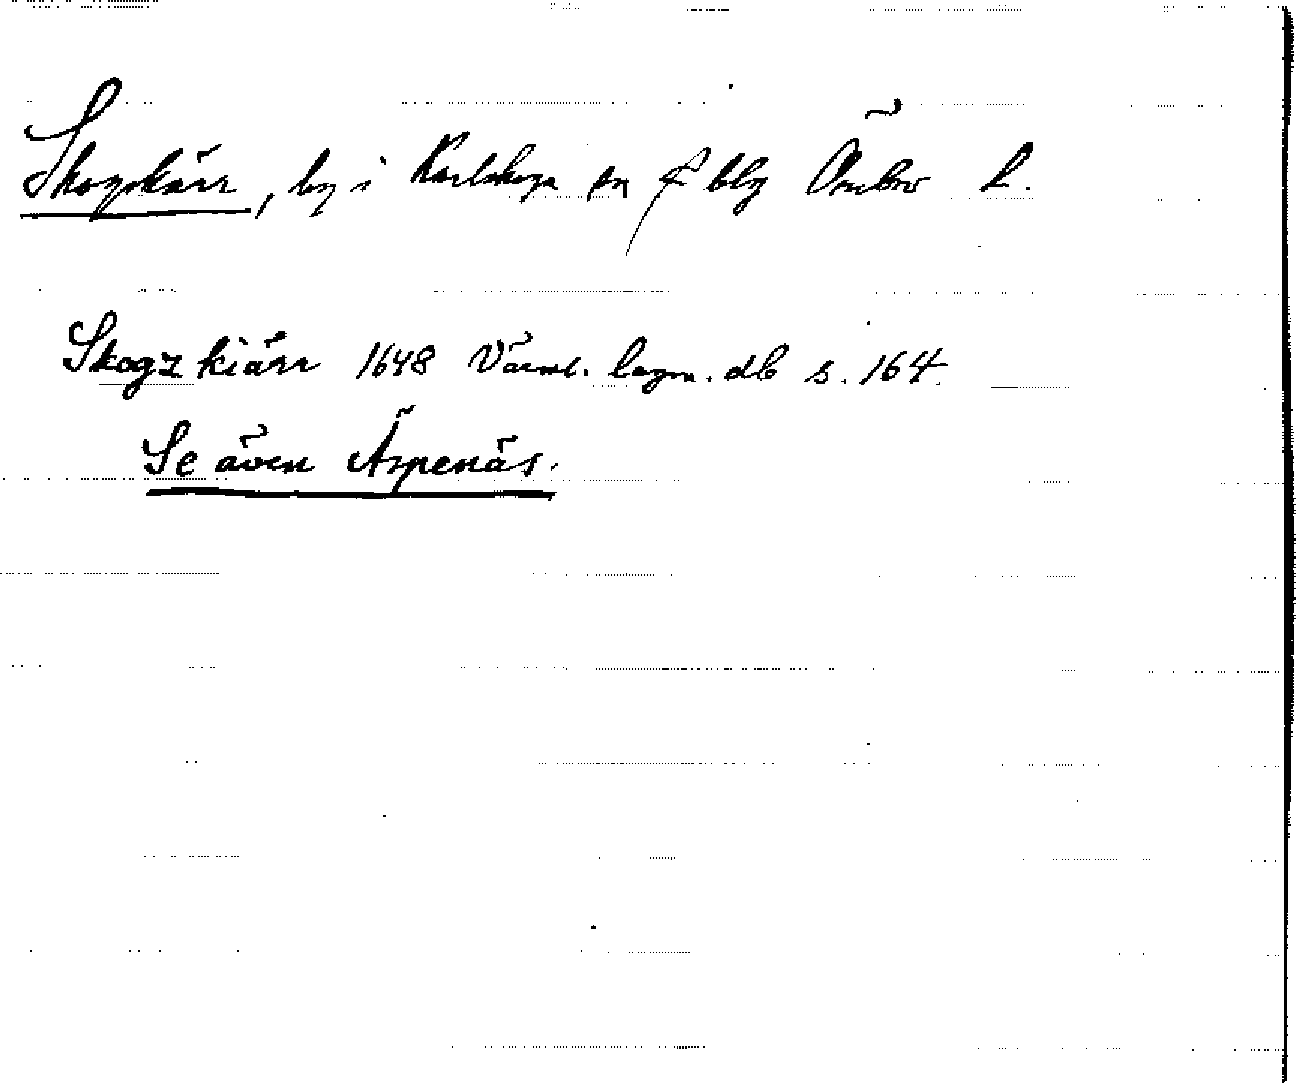 Skogskärr, by i Karlskoga sn o blg Örebro l.
Skogz kiärr 1648 Värml. lagm. db s. 164.
Se även Aspenäs.